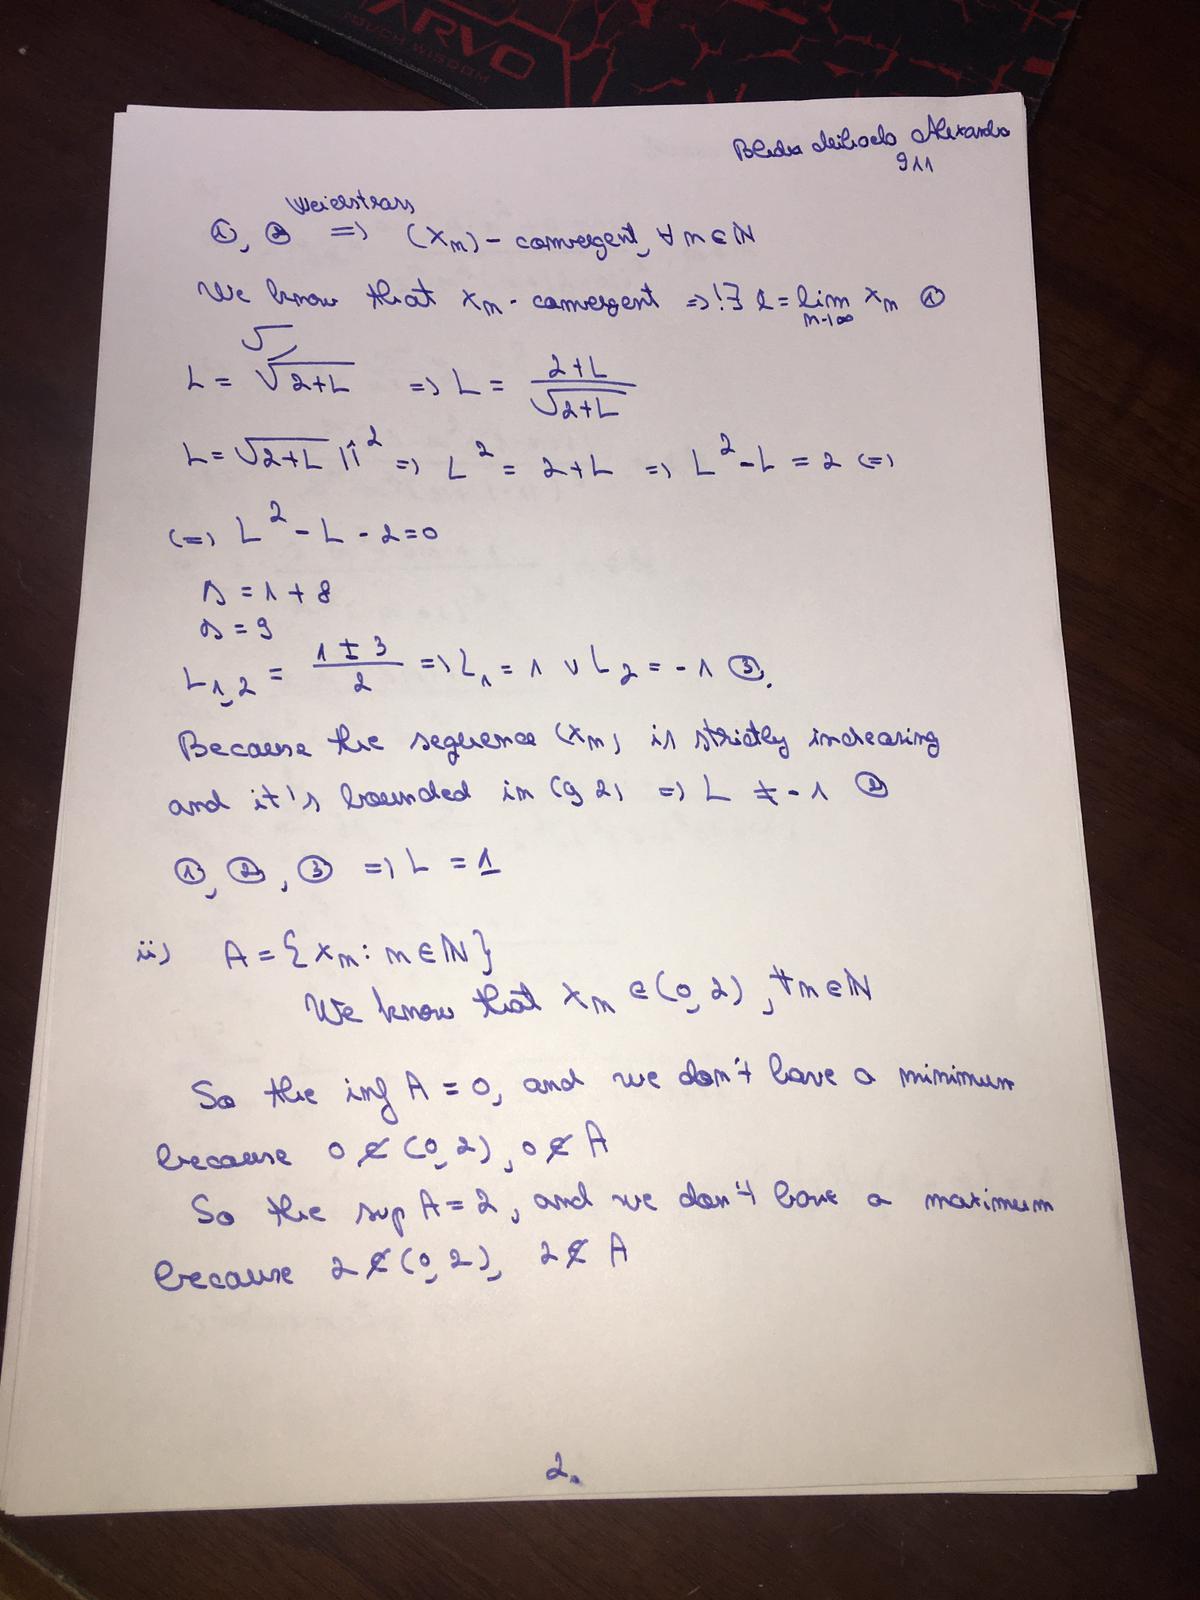 ARVO
MUCH WISDOM
Alexandra
911
Weierstrass
①, ② => (xn) - convergent, ∀ n ∈ ℕ
We know that xn - convergent => !∃ L = lim xn ①
n→∞
L = √2+L => L = 2+L / √2+L
L = √2+L |()² => L² = 2+L => L² - L = 2 <=>
<=> L² - L - 2 = 0
Δ = 1 + 8
Δ = 9
L1,2 = 1 ± 3 / 2 => L1 = 1 ∨ L2 = -1 ③.
Because the sequence (xn) is strictly increasing
and it's bounded in (0, 2) => L ≠ -1 ②
①, ②, ③ => L = 1
ii) A = {xn : n ∈ ℕ}
We know that xn ∈ (0, 2), ∀ n ∈ ℕ
So the inf A = 0, and we don't have a minimum
because 0 ∉ (0, 2), 0 ∉ A
So the sup A = 2, and we don't have a maximum
because 2 ∉ (0, 2), 2 ∉ A
2.